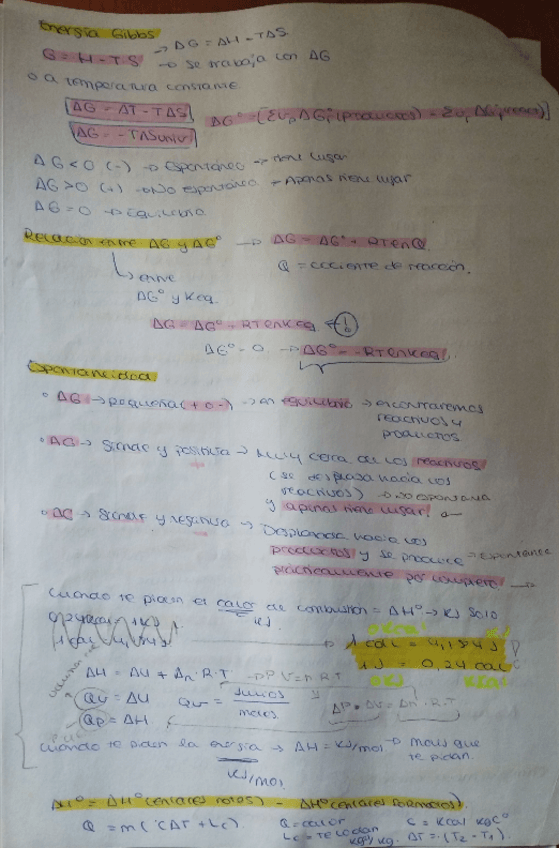 Energía Gibbs
G = H - T·S → ΔG = ΔH - TΔS
→ se trabaja con ΔG
o a temperatura constante
ΔG = ΔT - TΔS
ΔG = -TΔSuniv
ΔG° = [Σνp ΔG°(productos) - Σνr ΔG°(react)]
ΔG < 0 (-) → Espontáneo → tiene lugar
ΔG > 0 (+) → No espontánea → Apenas tiene lugar
ΔG = 0 → Equilibrio
Relación entre ΔG y ΔG° → ΔG = ΔG° + RTlnQ
Q = cociente de reacción.
entre
ΔG° y Keq.
ΔG = ΔG° + RTlnKeq
ΔG° = 0 → ΔG° = -RTlnKeq
Espontaneidad
• ΔG → pequeña (+ o -) → en equilibrio → encontraremos
reactivos y
productos
• ΔG → grande y positiva → Muy cerca de los reactivos
(se desplaza hacia los
reactivos) → No espontánea
y apenas tiene lugar.
• ΔG → grande y negativa → Desplazada hacia los
productos y se produce → espontánea
prácticamente por completo.
Cuando te piden el calor de combustión = ΔH° → KJ solo
KJ
1 cal = 4,184 J
1 J = 0,24 cal
ΔH = ΔU + Δn·R·T → P·V = n·R·T
Qv = ΔU
Qv = julios / moles
ΔP·ΔV = Δn·R·T
Qp = ΔH
Cuando te piden la energía → ΔH = KJ/mol → moles que
te pidan.
KJ/mol
ΔH° = ΔH° (enlaces rotos) - ΔH° (enlaces formados).
Q = m(CΔT + Lc) Q = calor C = Kcal Kg C°
Lc = ΔT = (T2 - T1)